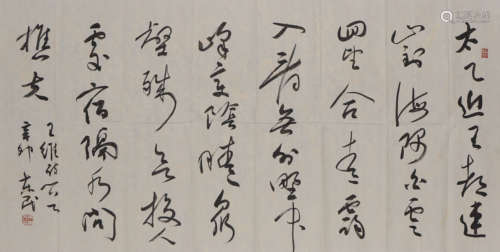 太乙近天都連
山到海隅白雲
回望合青靄
入看無分野中
峰變陰晴衆
壑殊欲投人
處宿隔水問
樵夫
王維詩
辛卯